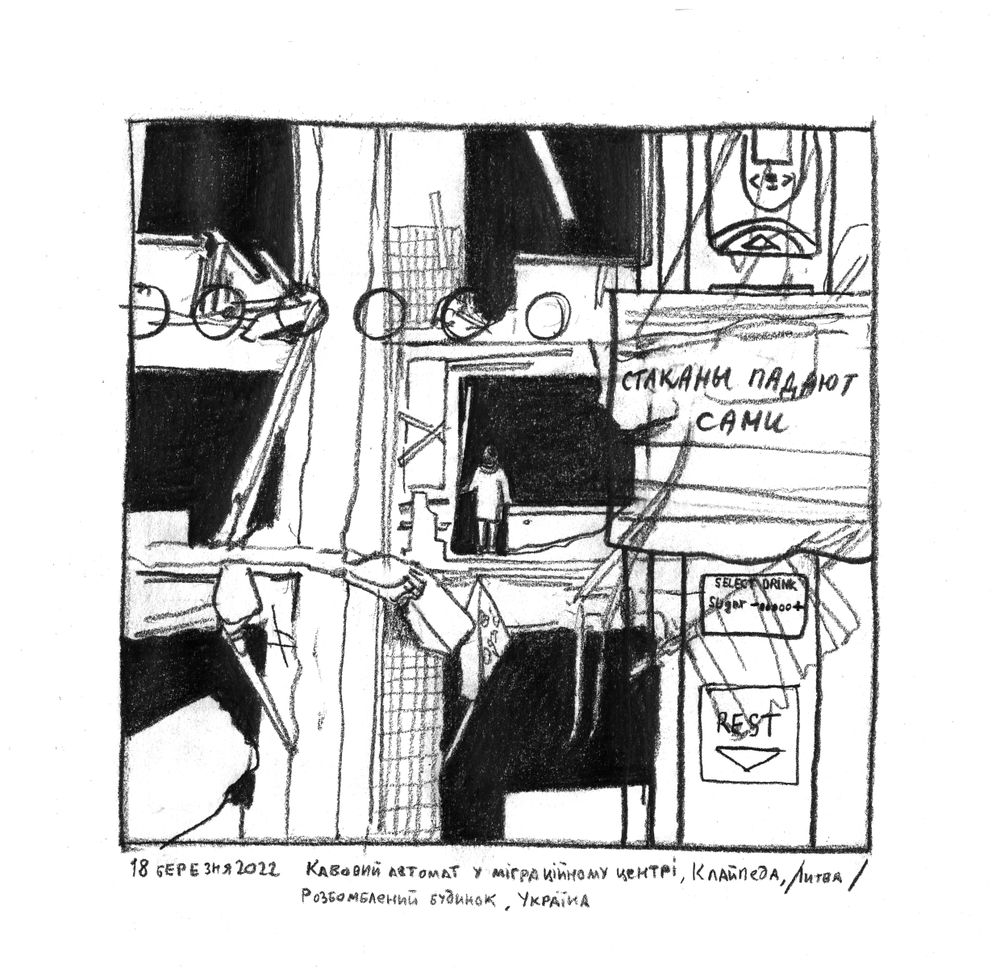 СТАКАНЫ ПАДАЮТ
САМИ
SELECT DRINK
Sugar -ooooo+
REST
18 БЕРЕЗНЯ 2022 КАВОВИЙ АВТОМАТ У МІГРАЦІЙНОМУ ЦЕНТРІ, КЛАЙПЕДА, ЛИТВА /
РОЗБОМБЛЕНИЙ БУДИНОК, УКРАЇНА